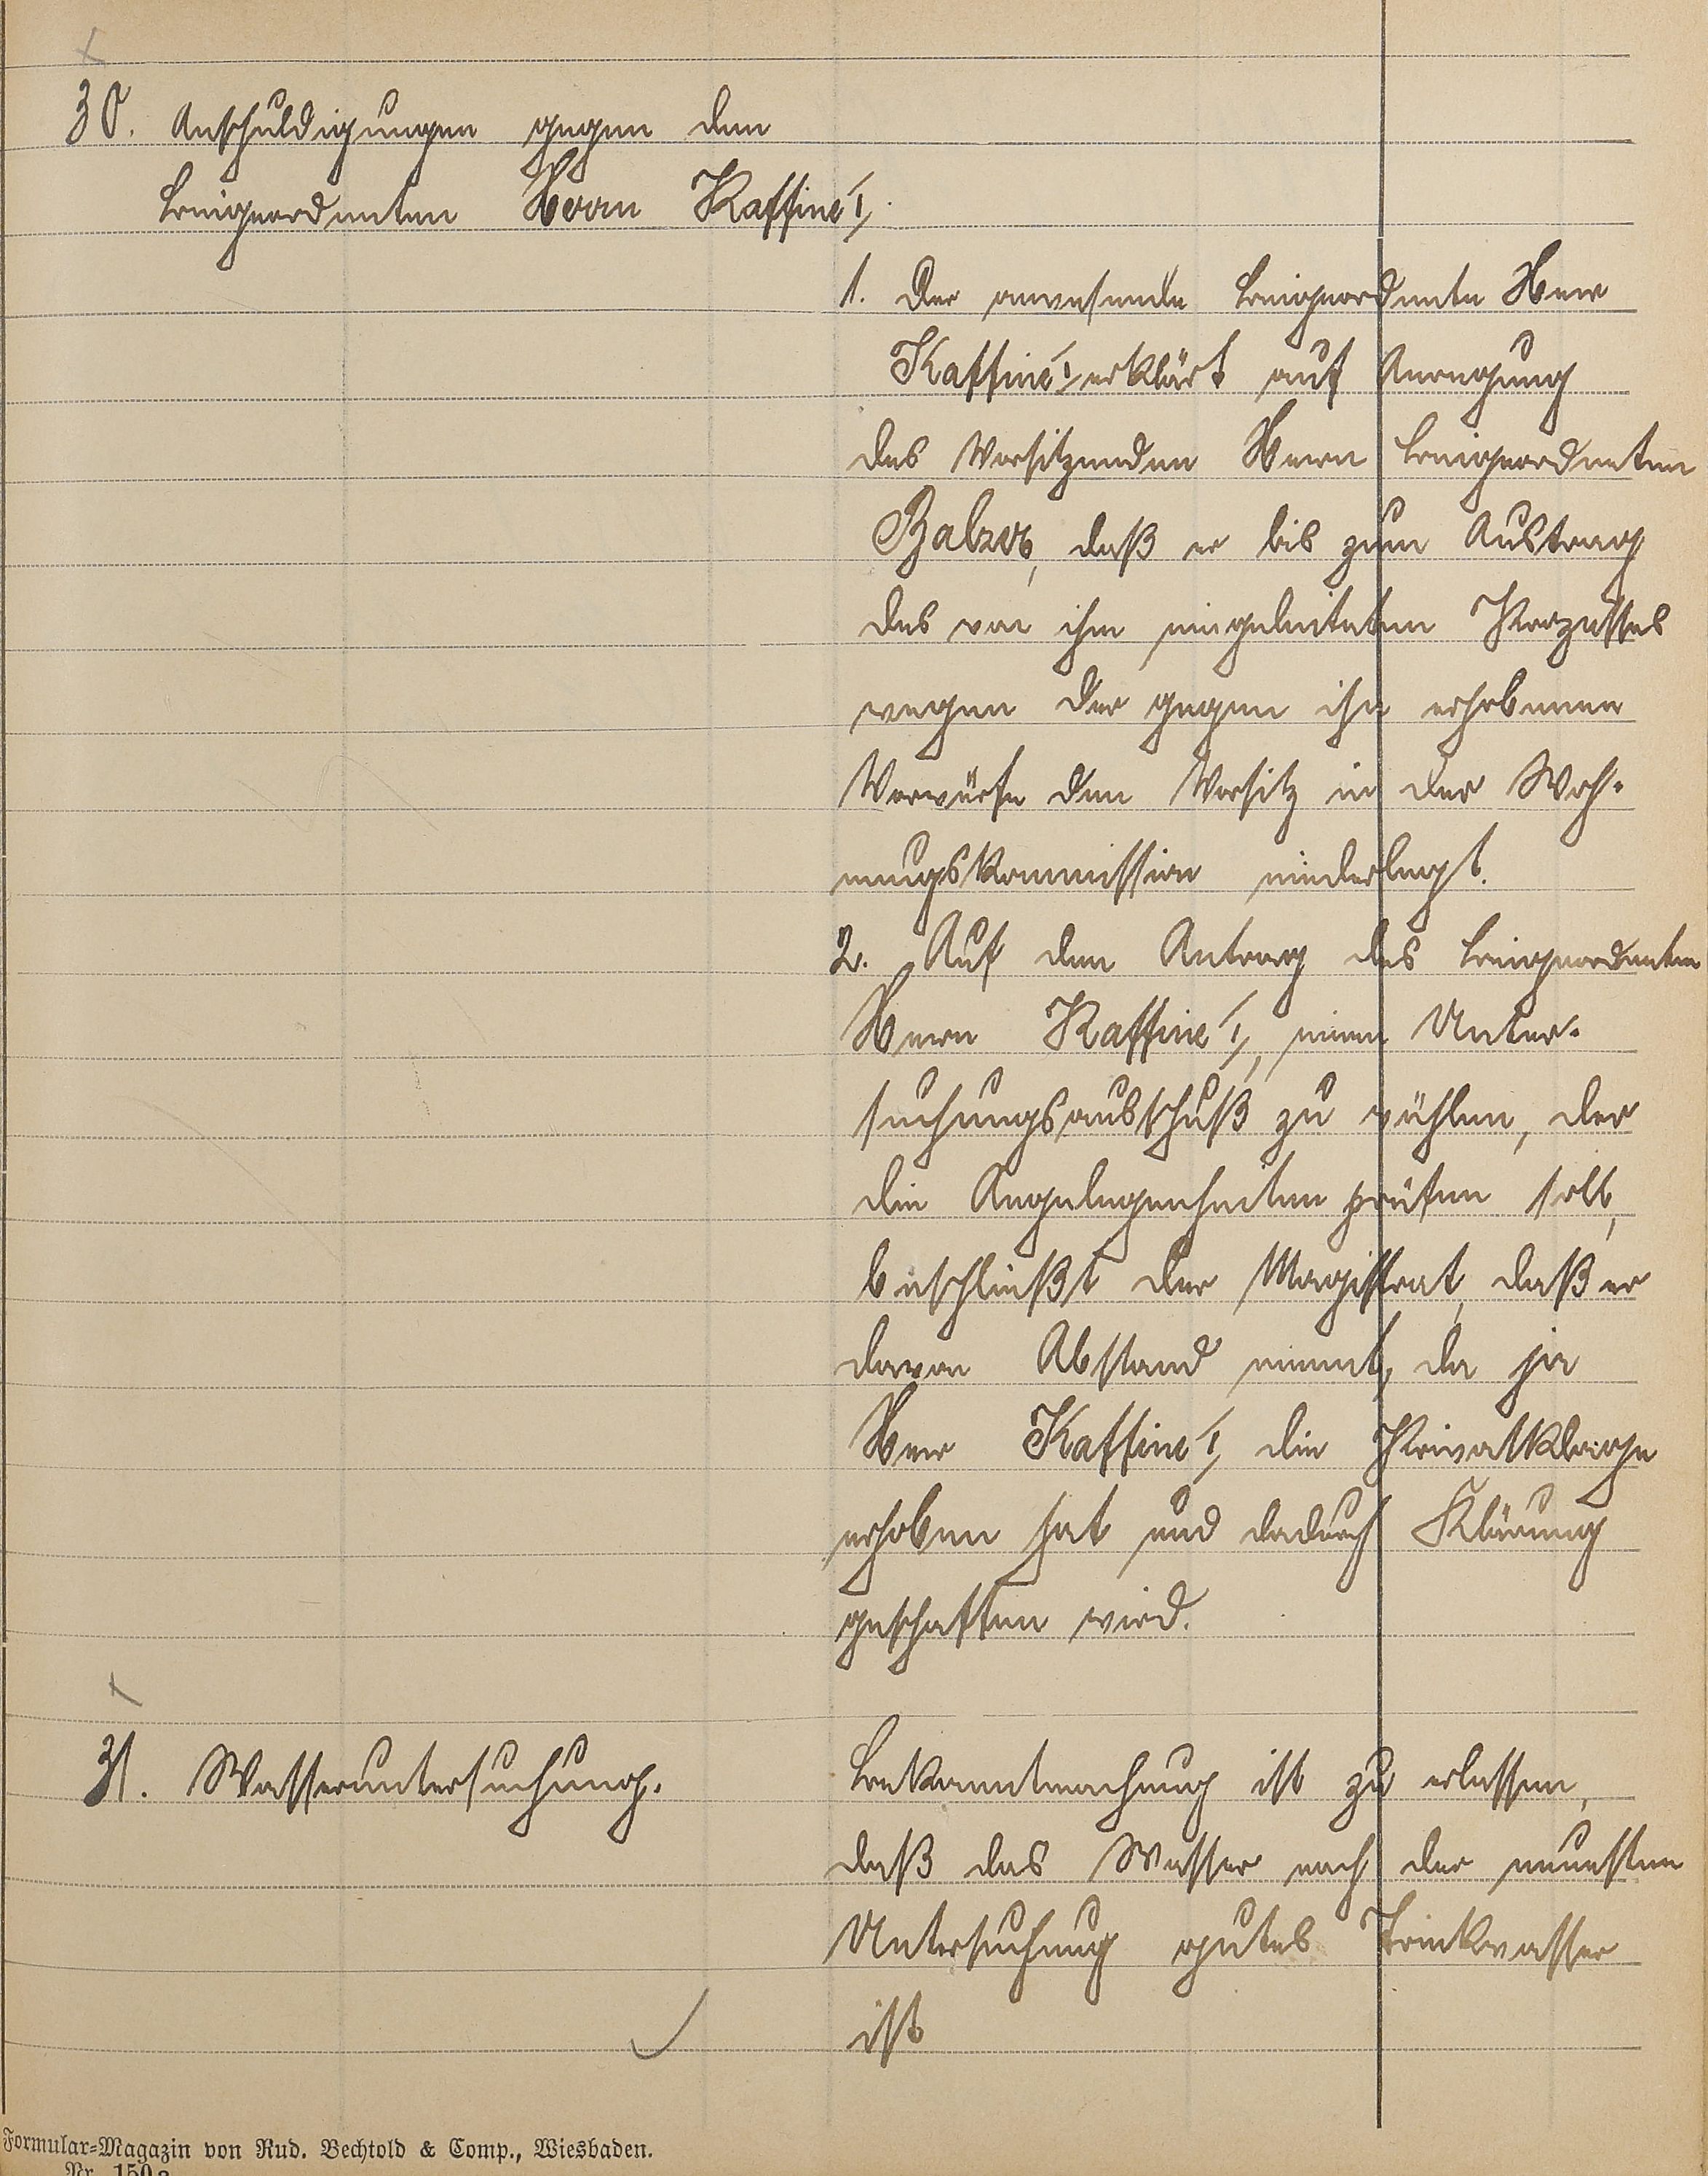 30. Anschuldigungen gegen den
Beigeordneten Herrn Kaffine´,
1. Der anwesende Beigeordnete Herr
Kaffine´, erklärt auf Anregung
des Vorsitzenden Herrn Beigeordneten
Balzer, daß er bis zum Austrag
des von ihm eingeleiteten Prozesses
wegen der gegen ihn erhobenen
Vorwürfe den Vorsitz in der Woh-
nungskommission niederlegt.
2. Auf den Antrag des Beigeordneten
Herrn Kaffine´, einen Unter-
suchungsausschuß zu wählen, der
die Angelegenheiten prüfen soll,
beschließt der Magistrat, daß er
davon Abstand nimmt, da ja
Herr Kaffine´, die Privatklage
erhoben hat und dadurch Klärung
geschaffen wird.
31. Wasseruntersuchung.
Bekanntmachung ist zu erlassen,
daß das Wasser nach der neuesten
Untersuchung gutes Trinkwasser
ist
Formular-Magazin von Rud. Bechtold & Comp., Wiesbaden.
Nr. 150a